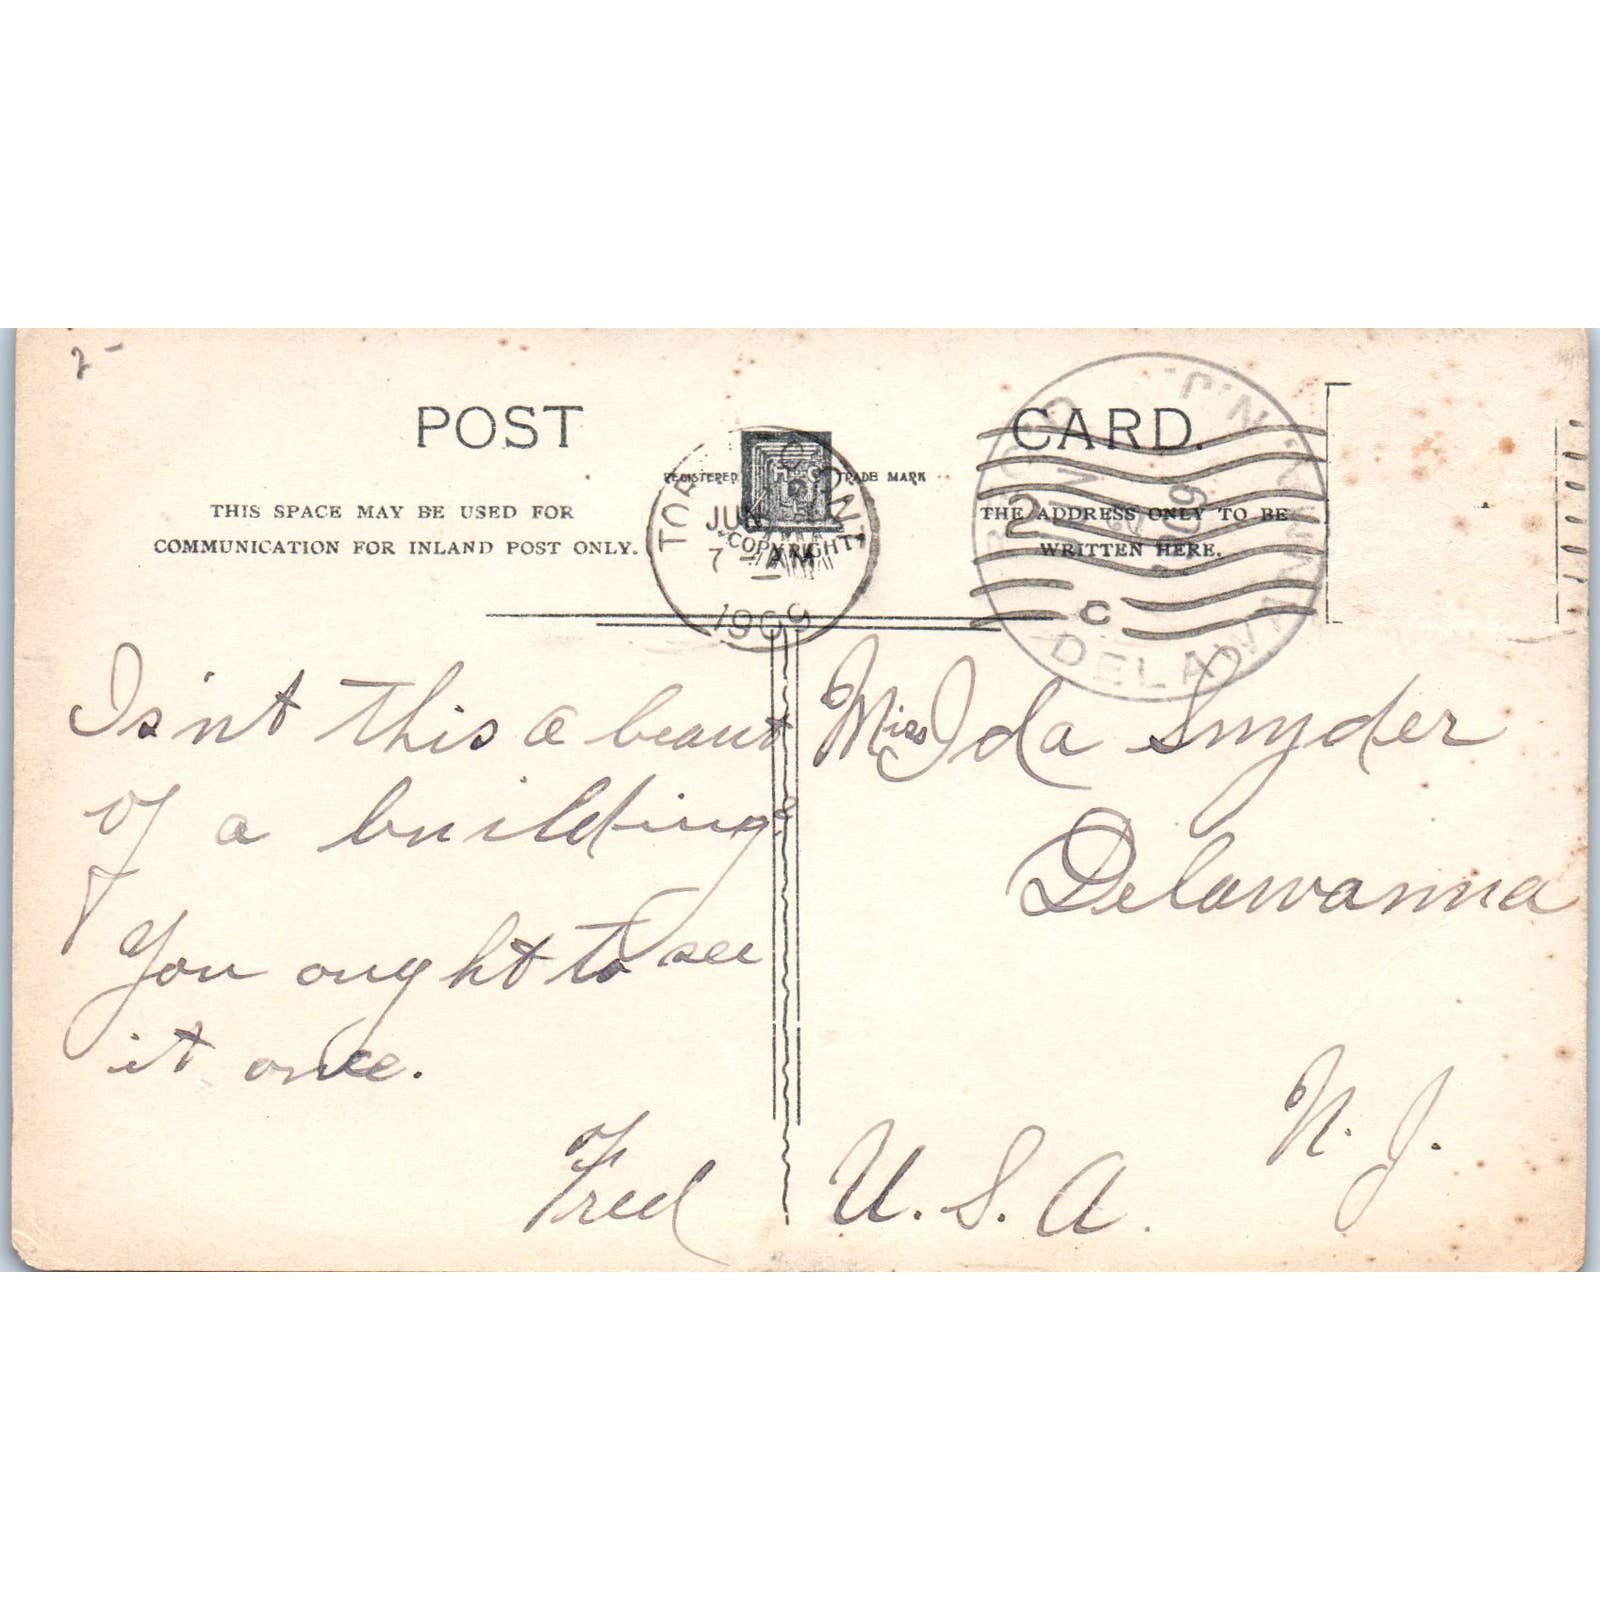 2-
POST CARD.
REGISTERED TRADE MARK
"COPYRIGHT"
THIS SPACE MAY BE USED FOR
COMMUNICATION FOR INLAND POST ONLY.
THE ADDRESS ONLY TO BE
WRITTEN HERE.
JUN 5
7 - AM
1909
2
C
DELAWANNA, N.J.
'09
Isn't this a beaut
of a building?
You ought to see
it once.
Fred
Miss Ida Snyder
Delawanna
N. J.
U. S. A.